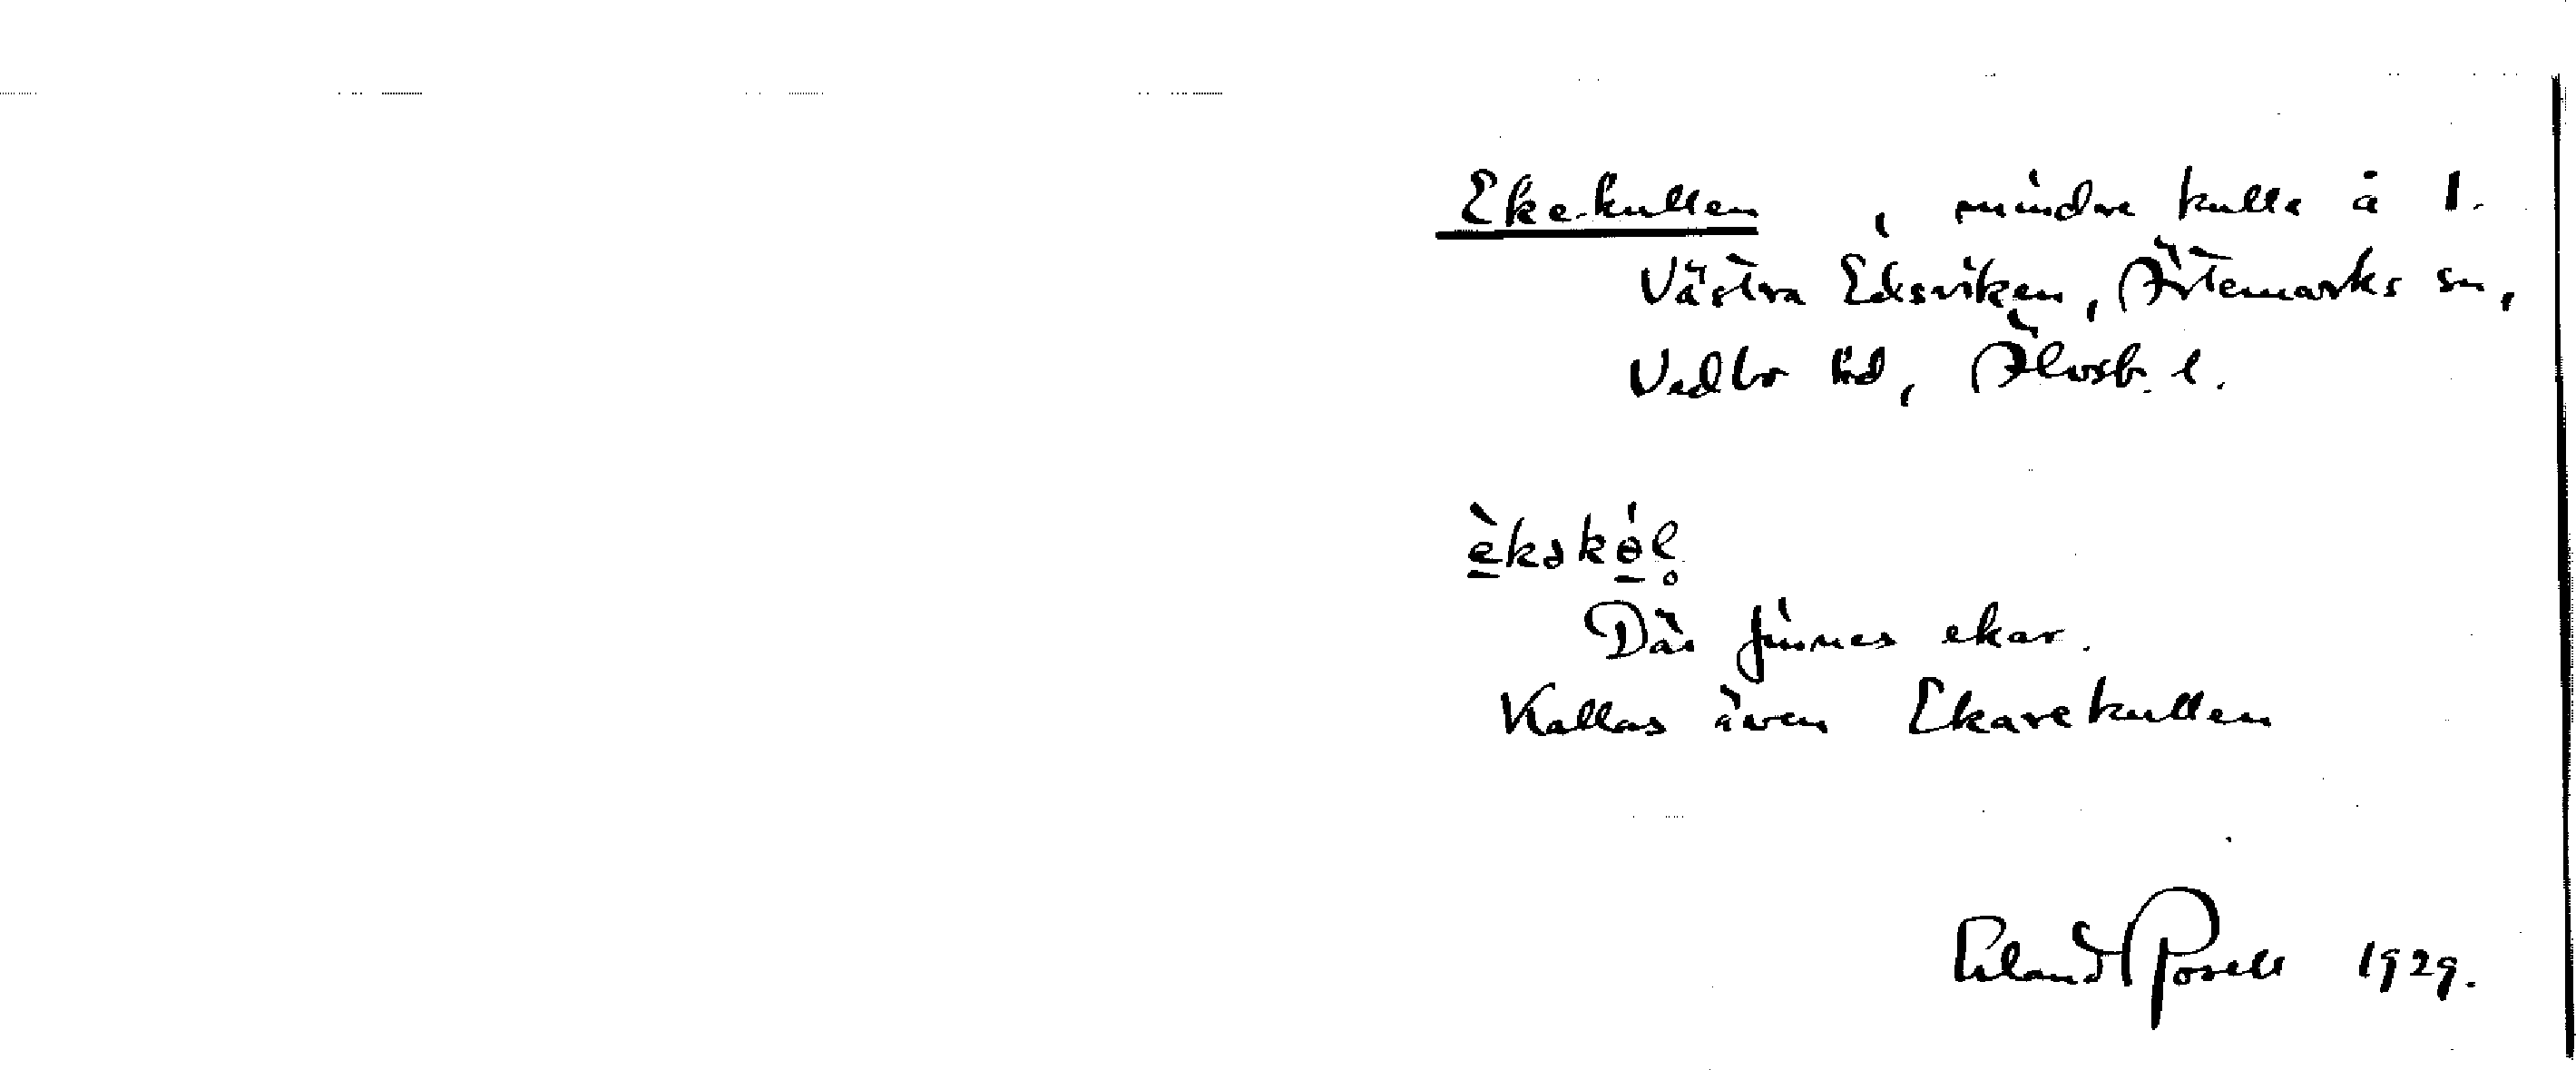 Ekekullen, mindre kulle å 1.
Västra Edsviken, Ärtemarks sn,
Vedbo hd, Älvsb. l.
èkəkɵ́l̥
Där finnes ekar.
Kallas även Ekarekullen
Erland Rosell 1929.